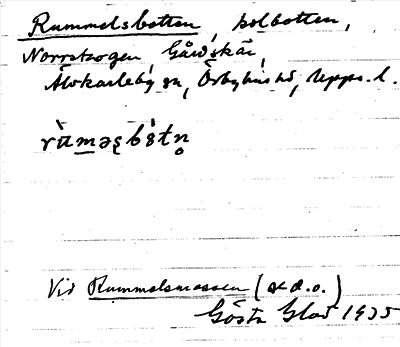 Rummelsbotten, kolbotten,
Norrskogen, Gårdskär,
Älvkarleby sn, Örbyhus hd, Upps. l.
Vid Rummelsmossen (se d.o.)
Gösta Glad 1935